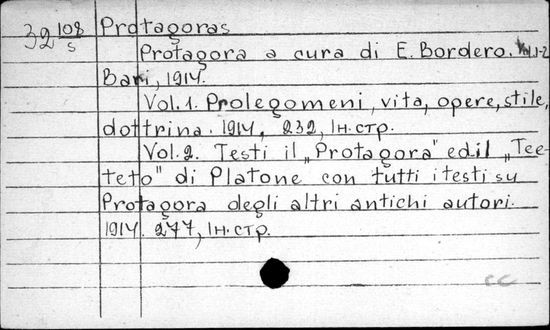 32 108/5 Protagoras
Protagora a cura di E. Bordero. Vol.1-2
Bari, 1914.
Vol. 1. Prolegomeni, vita, opere, stile,
dottrina. 1914, 232, 1н.стр.
Vol. 2. Testi il „Protagora" ed il „Tee-
teto" di Platone con tutti i testi su
Protagora degli altri antichi autori.
1914. 277, 1н.стр.
сс